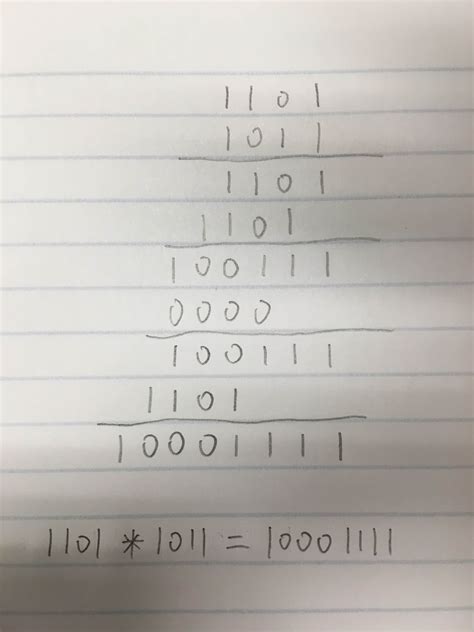 1101
1011
1101
1101
100111
0000
100111
1101
10001111
1101 * 1011 = 10001111